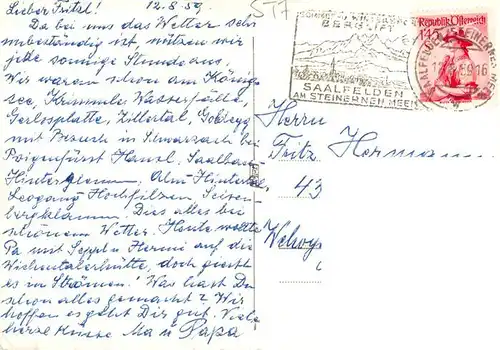 Lieber Fritzl! 12.8.59
Da bei uns das Wetter sehr
unbeständig ist, nützen wir
jede sonnige Stunde aus.
Wir waren schon am Königs
see, Krimmler Wasserfälle,
Gerlosplatte, Zillertal, Goldegg
mit Besuch in Schwarzach bei
Hansl. Saalbach
Hinterglemm. Alm-Hintertal,
Leogang Hochfilzen Seisen-
bergklamm. Dies alles bei
schönem Wetter. Heute wollte
Pa mit Seppl u Hermi auf die
doch giesst
es in Strömen. Was hast Du
schon alles gemacht? Wir
hoffen es geht Dir gut. Viele
herzl Küsse Ma u Papa
577
SOMMER U. WINTERSPORT
BERGLIFT
SAALFELDEN
AM STEINERNEN MEER
Republik Österreich
1.45
SAALFELDEN
Herrn
Fritz Hermann
43
Wels